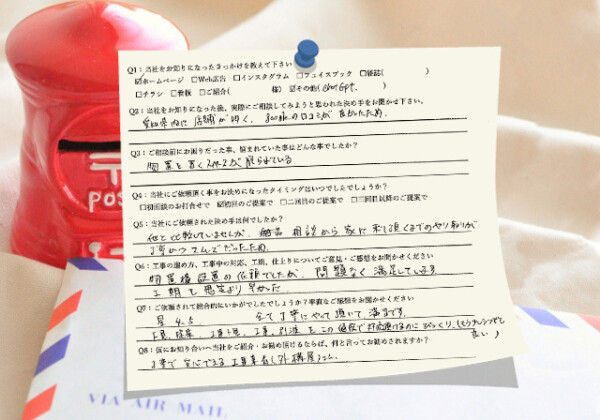 Q1：当社をお知りになったきっかけを教えて下さい
☑ホームページ □Web広告 □インスタグラム □フェイスブック □雑誌( )
□チラシ □看板 □ご紹介( 様) ☑その他(ChatGpt. )
Q2：当社をお知りになった後、実際にご相談してみようと思われた決め手をお聞かせ下さい。
愛知県内に店舗が
の口コミが良かったため.
Q3：ご相談前にお困りだった事、悩まれていた事はどんな事でしたか？
物置を置くスペースが限られている
Q4：当社にご依頼頂く事をお決めになったタイミングはいつでしたでしょうか？
□初回面のお打合せで ☑初回のご提案で □二回目のご提案で □三回目以降のご提案で
Q5：当社にご依頼された決め手は何でしたか？
他と比較していませんが、 相談から家に来て頂くまでのやり取りが
丁寧かつ だったため.
Q6：工事の進め方、工事中の対応、工期、仕上りについてご意見・ご感想をお聞かせください
物置場設置の依頼でしたが、問題なく満足しています
工期も想定より早かった.
Q7：ご依頼されて総合的にいかがでしたでしょうか？率直なご感想をお聞かせください
星 4.5 全て丁寧にやって頂いて満足です.
この値段で
良い
Q8：仮にお知り合いへ当社をご紹介・お勧め頂けるならば、何と言ってお勧めされますか？
丁寧で安心できる
POS
VIA AIR MAIL